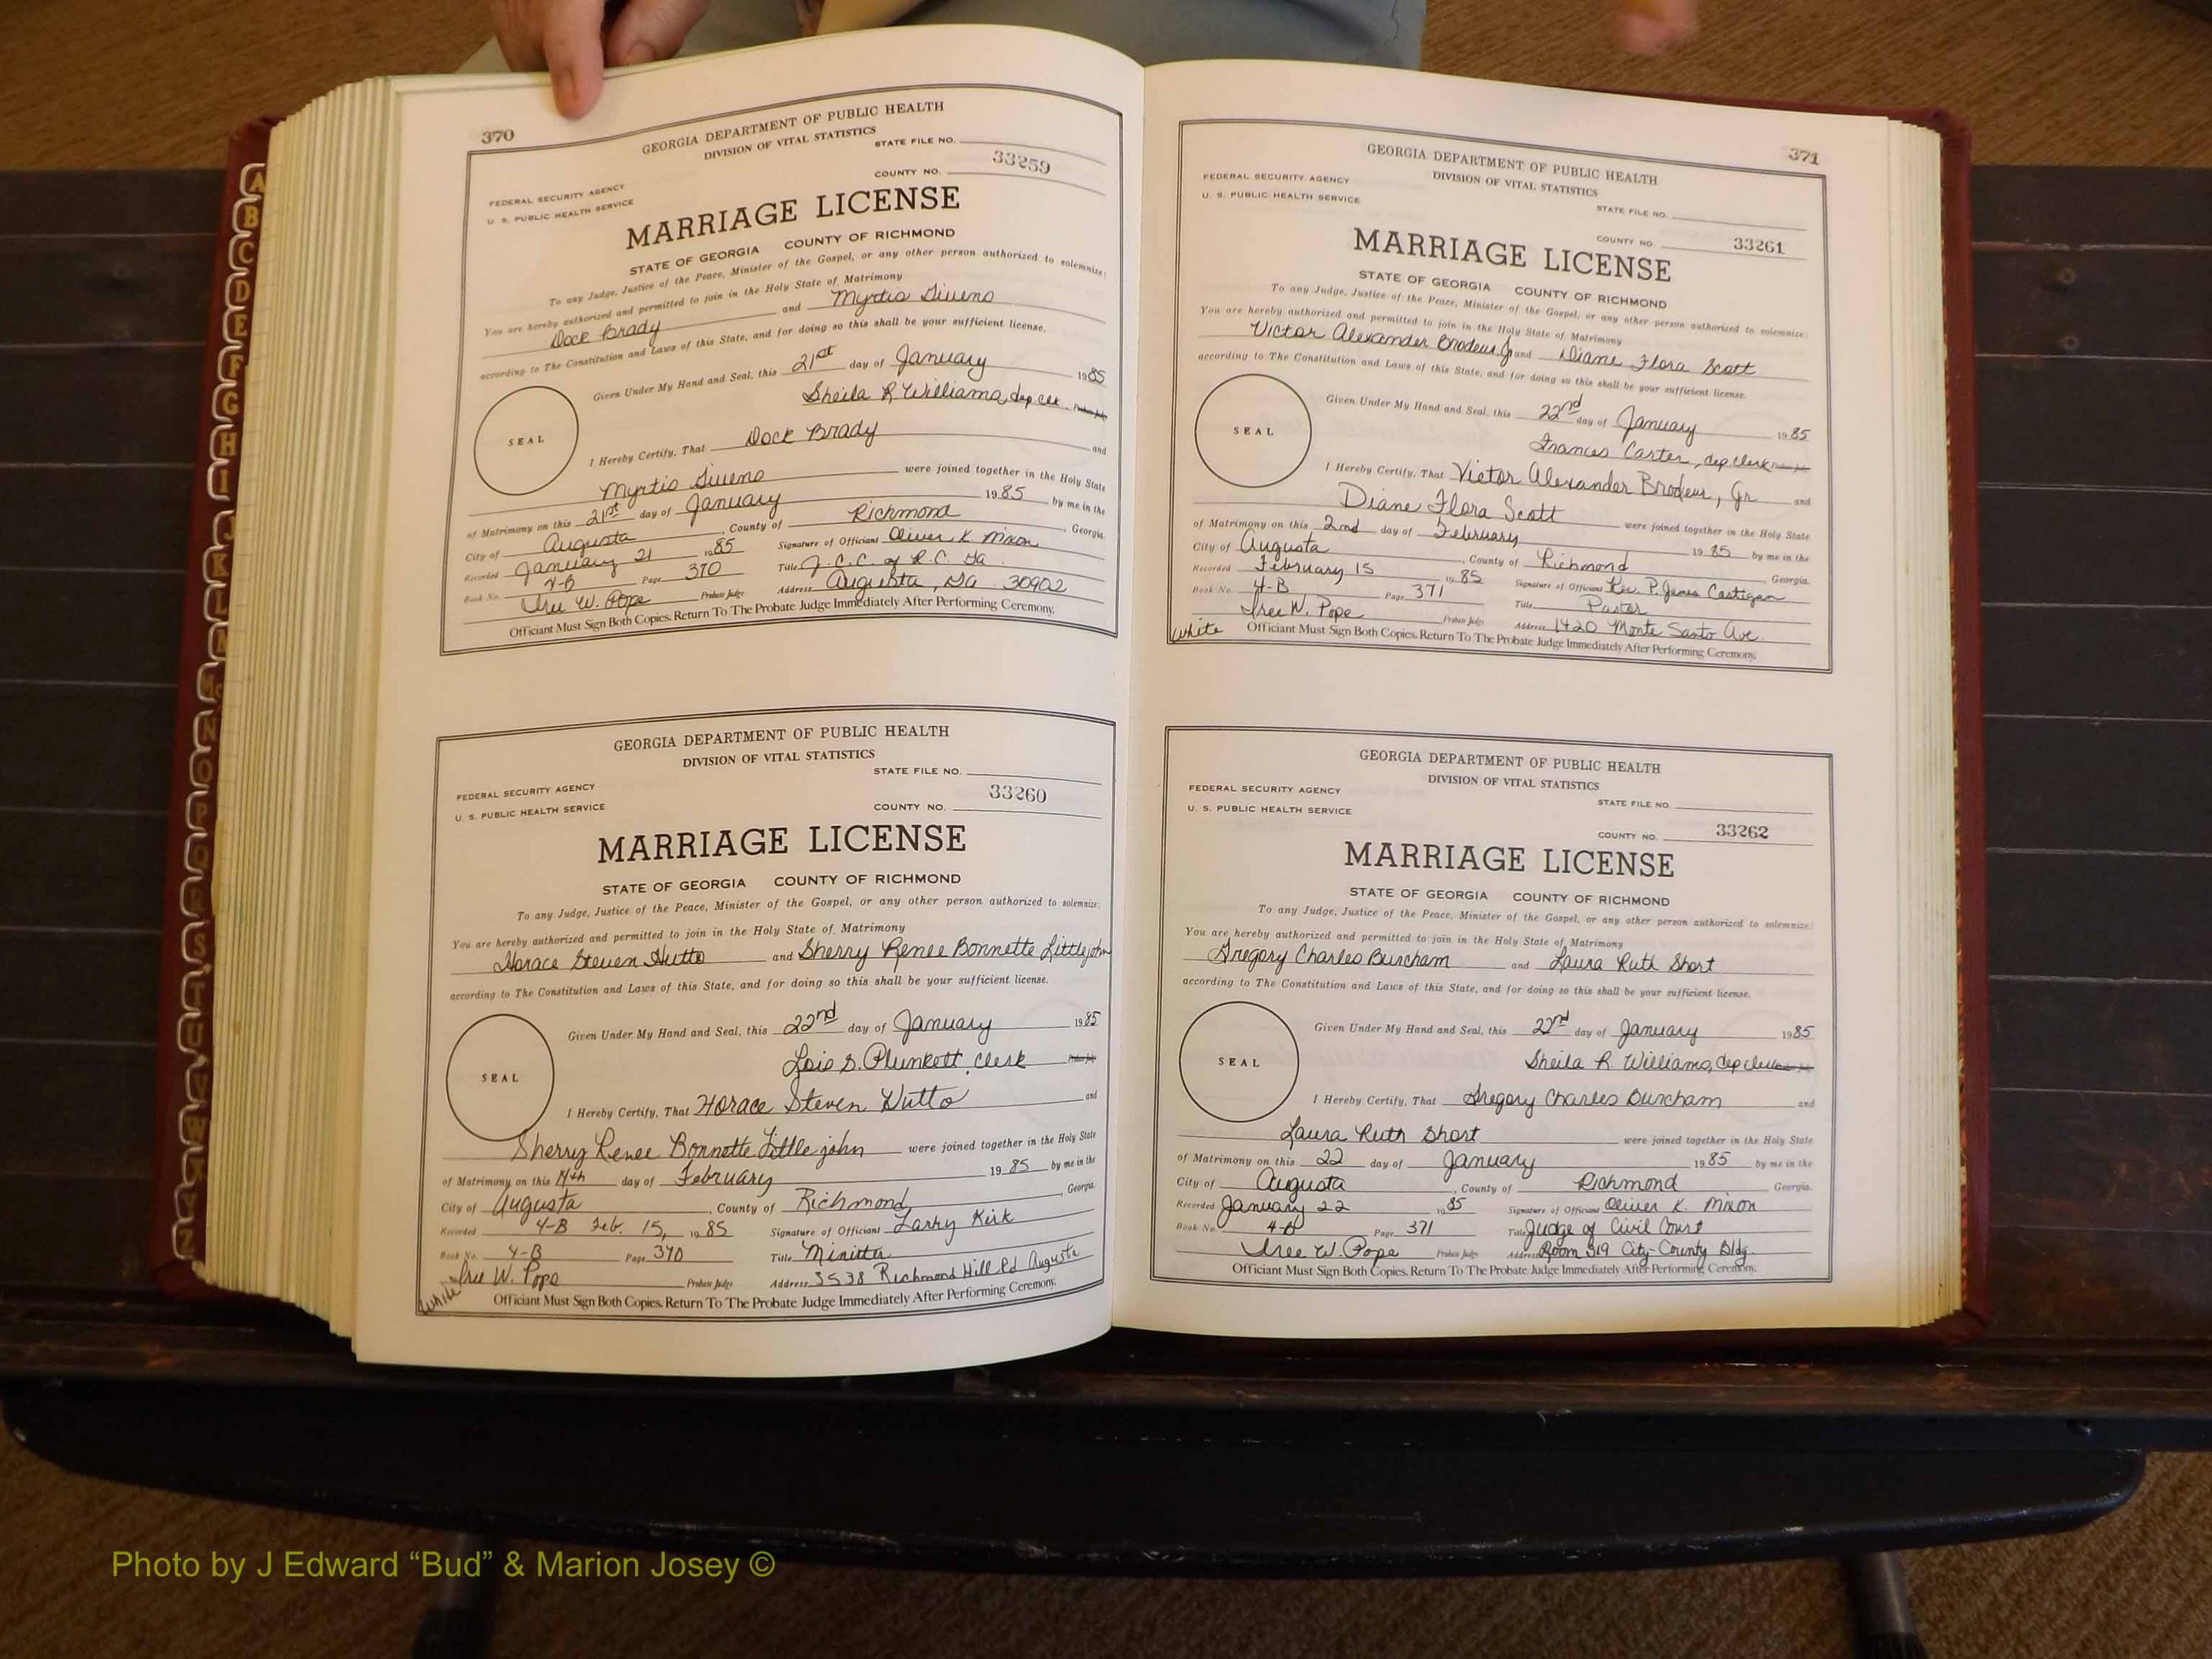 370
GEORGIA DEPARTMENT OF PUBLIC HEALTH
DIVISION OF VITAL STATISTICS
STATE FILE NO.
33259
COUNTY NO.
FEDERAL SECURITY AGENCY
U. S. PUBLIC HEALTH SERVICE
MARRIAGE LICENSE
STATE OF GEORGIA COUNTY OF RICHMOND
To any Judge, Justice of the Peace, Minister of the Gospel, or any other person authorized to solemnize:
You are hereby authorized and permitted to join in the Holy State of Matrimony
Dock Brady and Myrtis Givens
according to The Constitution and Laws of this State, and for doing so this shall be your sufficient license.
Given Under My Hand and Seal, this 21st day of January 1985
Sheila R. Williams, dep clk Probate Judge
SEAL
I Hereby Certify, That Dock Brady and
Myrtis Givens were joined together in the Holy State
of Matrimony on this 21st day of January 1985 by me in the
City of Augusta, County of Richmond, Georgia.
Recorded January 21 1985 Signature of Officiant Oliver K. Mixon
Book No. 4-B Page 370 Title J. C. C. of R. C. Ga
Iree W. Pope Probate Judge Address Augusta, Ga 30902
Officiant Must Sign Both Copies. Return To The Probate Judge Immediately After Performing Ceremony.
GEORGIA DEPARTMENT OF PUBLIC HEALTH
DIVISION OF VITAL STATISTICS
STATE FILE NO.
33260
FEDERAL SECURITY AGENCY
U. S. PUBLIC HEALTH SERVICE
COUNTY NO.
MARRIAGE LICENSE
STATE OF GEORGIA COUNTY OF RICHMOND
To any Judge, Justice of the Peace, Minister of the Gospel, or any other person authorized to solemnize:
You are hereby authorized and permitted to join in the Holy State of Matrimony
Horace Steven Hutto and Sherry Renee Bonnette Littlejohn
according to The Constitution and Laws of this State, and for doing so this shall be your sufficient license.
Given Under My Hand and Seal, this 22nd day of January 1985
Lois S. Plunkett, Clerk Probate Judge
SEAL
I Hereby Certify, That Horace Steven Hutto and
Sherry Renee Bonnette Littlejohn were joined together in the Holy State
of Matrimony on this 14th day of February 1985 by me in the
City of Augusta, County of Richmond, Georgia.
Recorded 4-B Feb. 15, 1985 Signature of Officiant Larry Kirk
Book No. 4-B Page 370 Title Minister
Iree W. Pope Probate Judge Address 3538 Richmond Hill Rd Augusta
White Officiant Must Sign Both Copies. Return To The Probate Judge Immediately After Performing Ceremony.
371
GEORGIA DEPARTMENT OF PUBLIC HEALTH
DIVISION OF VITAL STATISTICS
FEDERAL SECURITY AGENCY
U. S. PUBLIC HEALTH SERVICE
STATE FILE NO.
COUNTY NO. 33261
MARRIAGE LICENSE
STATE OF GEORGIA COUNTY OF RICHMOND
To any Judge, Justice of the Peace, Minister of the Gospel, or any other person authorized to solemnize:
You are hereby authorized and permitted to join in the Holy State of Matrimony
Victor Alexander Brodeur, Jr and Diane Flora Scott
according to The Constitution and Laws of this State, and for doing so this shall be your sufficient license.
Given Under My Hand and Seal, this 22nd day of January 1985
Frances Carter, dep clerk Probate Judge
SEAL
I Hereby Certify, That Victor Alexander Brodeur, Jr and
Diane Flora Scott were joined together in the Holy State
of Matrimony on this 2nd day of February 1985 by me in the
City of Augusta, County of Richmond Georgia.
Recorded February 15 1985 Signature of Officiant Rev. P. James Costigan
Book No. 4-B Page 371 Title Pastor
Iree W. Pope Probate Judge Address 1420 Monte Santo Ave.
White Officiant Must Sign Both Copies. Return To The Probate Judge Immediately After Performing Ceremony.
GEORGIA DEPARTMENT OF PUBLIC HEALTH
DIVISION OF VITAL STATISTICS
FEDERAL SECURITY AGENCY
STATE FILE NO.
U. S. PUBLIC HEALTH SERVICE
COUNTY NO. 33262
MARRIAGE LICENSE
STATE OF GEORGIA COUNTY OF RICHMOND
To any Judge, Justice of the Peace, Minister of the Gospel, or any other person authorized to solemnize:
You are hereby authorized and permitted to join in the Holy State of Matrimony
Gregory Charles Burcham and Laura Ruth Short
according to The Constitution and Laws of this State, and for doing so this shall be your sufficient license.
Given Under My Hand and Seal, this 22nd day of January 1985
Sheila R. Williams, dep clerk
SEAL
I Hereby Certify, That Gregory Charles Burcham and
Laura Ruth Short were joined together in the Holy State
of Matrimony on this 22 day of January 1985 by me in the
City of Augusta, County of Richmond Georgia.
Recorded January 22 1985 Signature of Officiant Oliver K. Mixon
Book No. 4-B Page 371 Title Judge of Civil Court
Iree W. Pope Probate Judge Address Room 319 City-County Bldg.
Officiant Must Sign Both Copies. Return To The Probate Judge Immediately After Performing Ceremony.
A
B
C
D
E
F
G
H
I
J
K
L
M
Mc
N
O
P
Q
R
S
T
U
V
W
Y
Z
Photo by J Edward “Bud” & Marion Josey ©